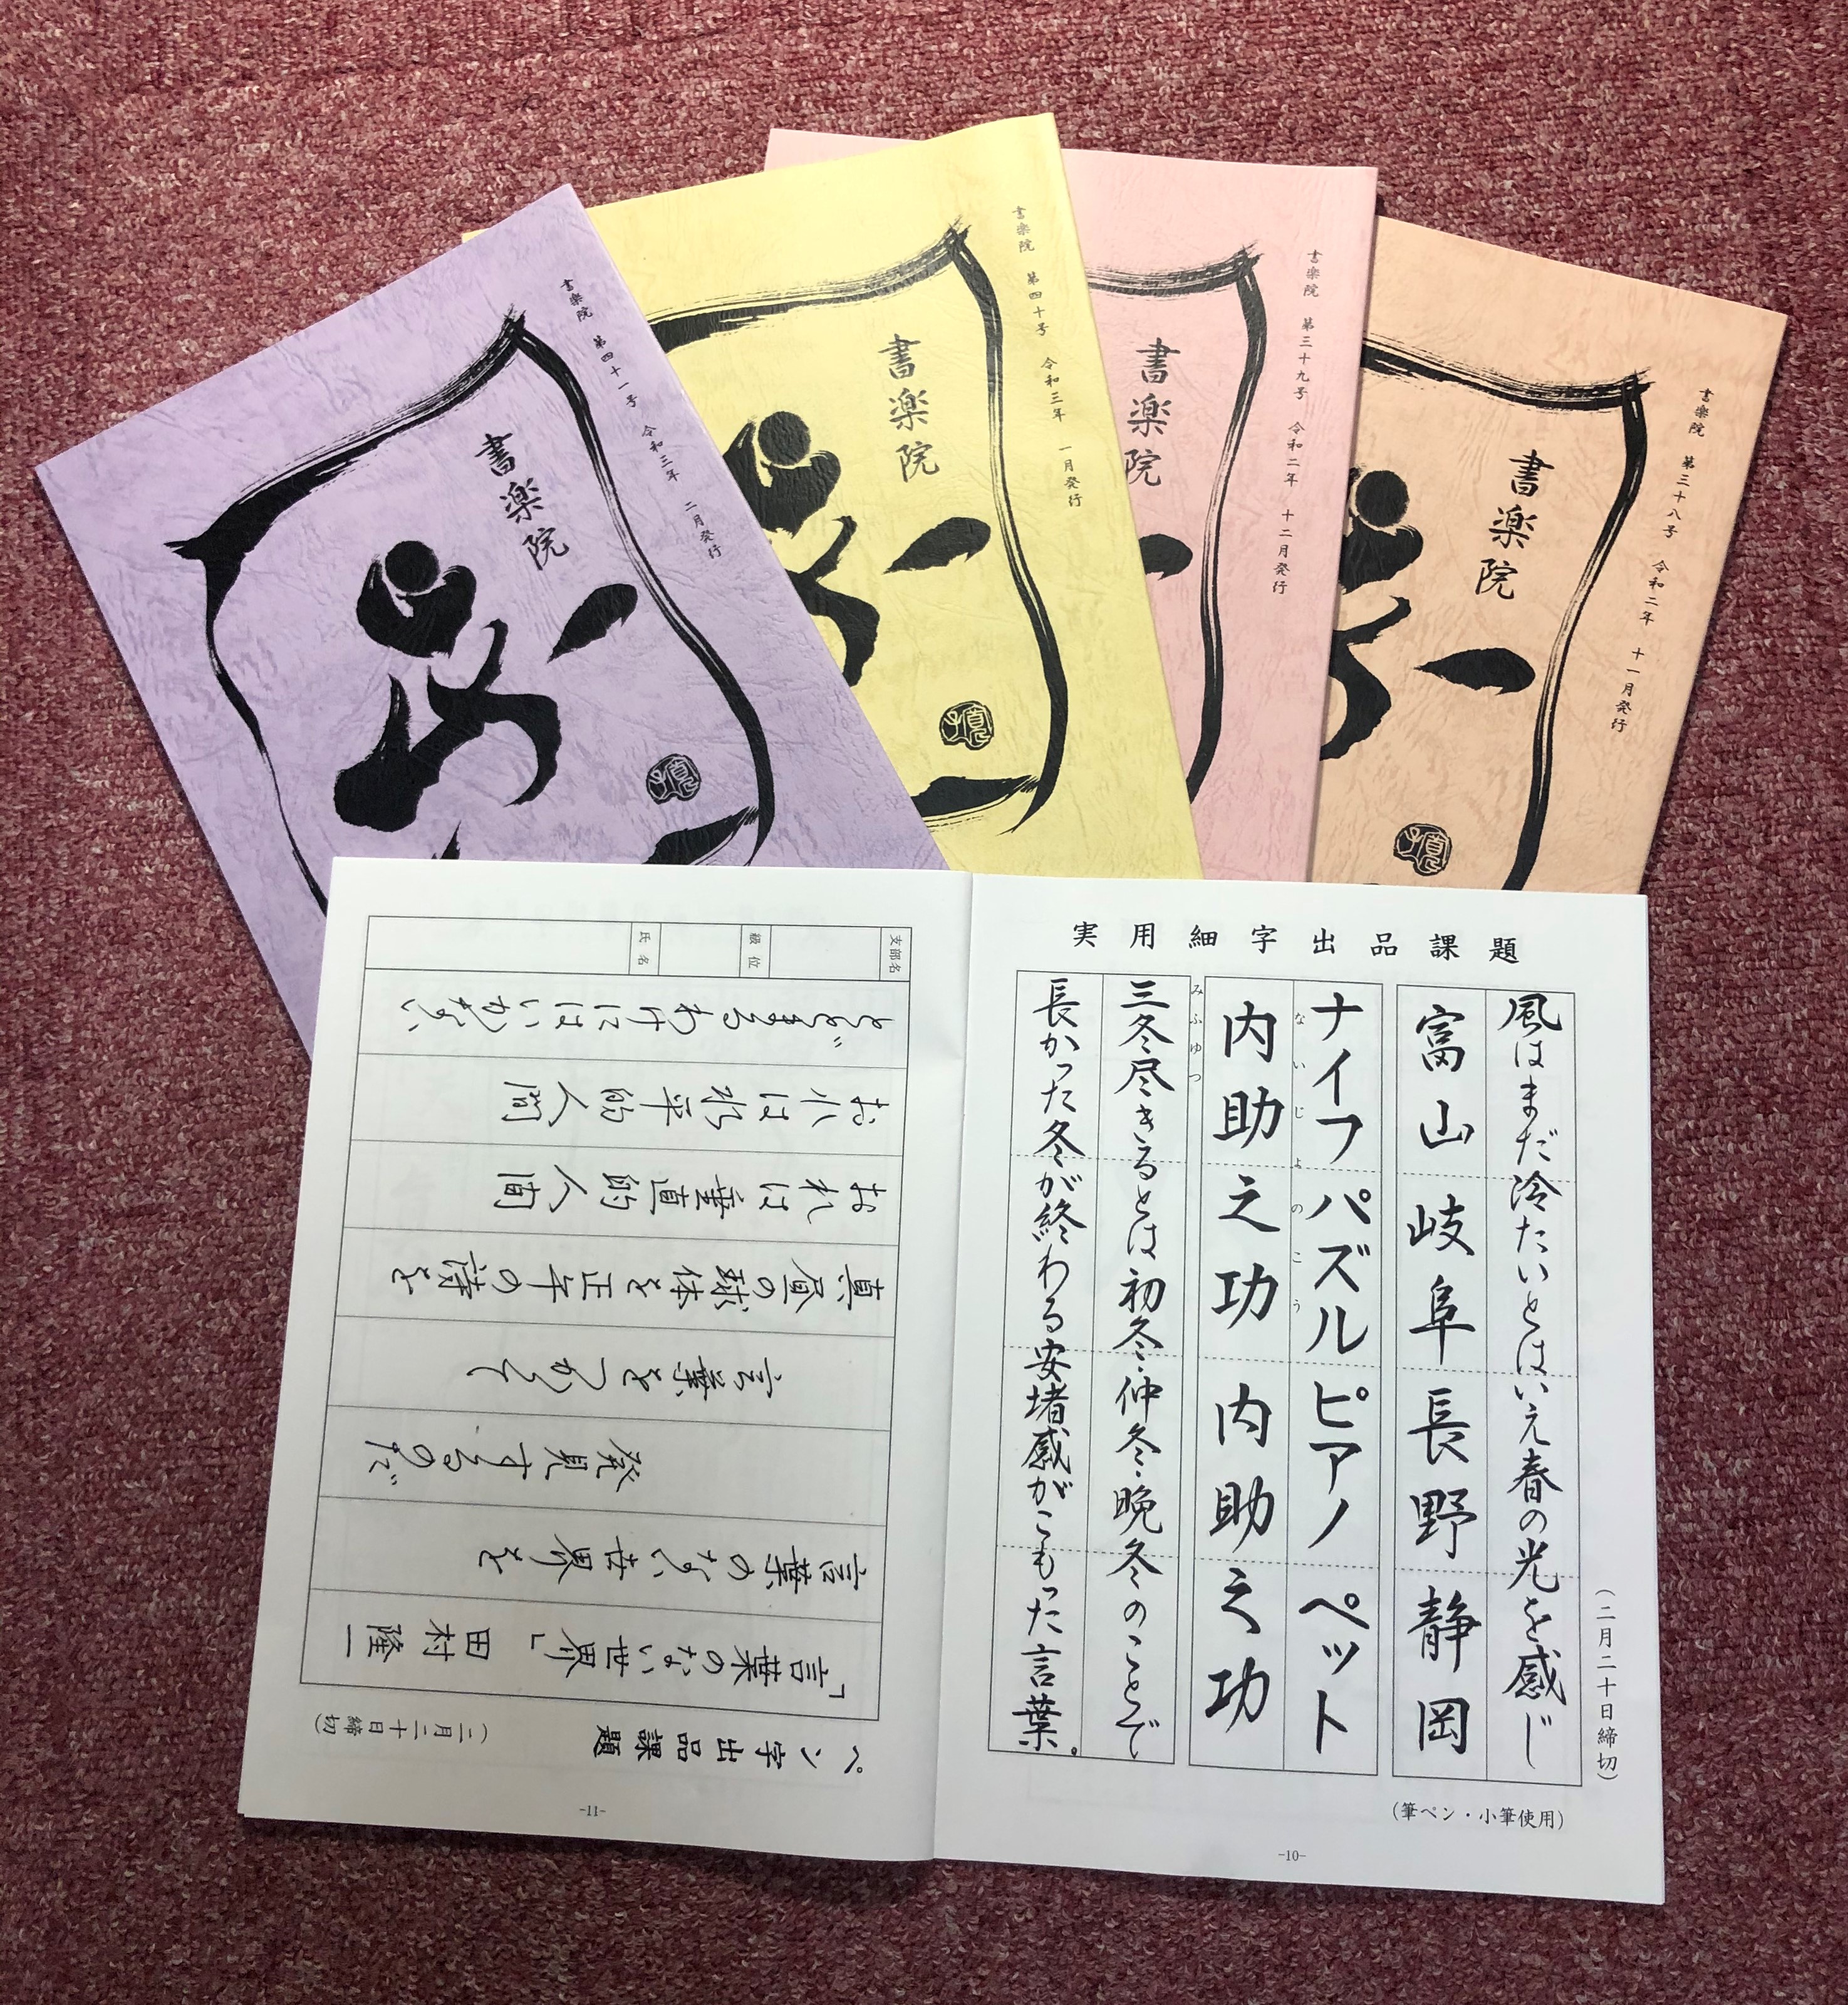 書楽院 第四十一号 令和三年 二月発行
書楽院
書楽院 第四十号 令和三年 一月発行
書楽院
書楽院 第三十九号 令和二年 十二月発行
書楽院
書楽院 第三十八号 令和二年 十一月発行
書楽院
実用細字出品課題
（二月二十日締切）
風はまだ冷たいとはいえ春の光を感じ
富山 岐阜 長野 静岡
ナイフ パズル ピアノ ペット
ないじよのこう
内助之功 内助之功
みふゆつ
三冬尽きるとは初冬・仲冬・晩冬のことで
長かった冬が終わる安堵感がこもった言葉。
（筆ペン・小筆使用）
-10-
ペン字出品課題
（二月二十日締切）
「言葉のない世界」 田村隆一
言葉のない世界を
発見するのだ
言葉をつかって
真昼の球体を 正午の詩を
おれは垂直的人間
おれは水平的人間
とどまるわけにはいかない
支部名
級位
氏名
-11-